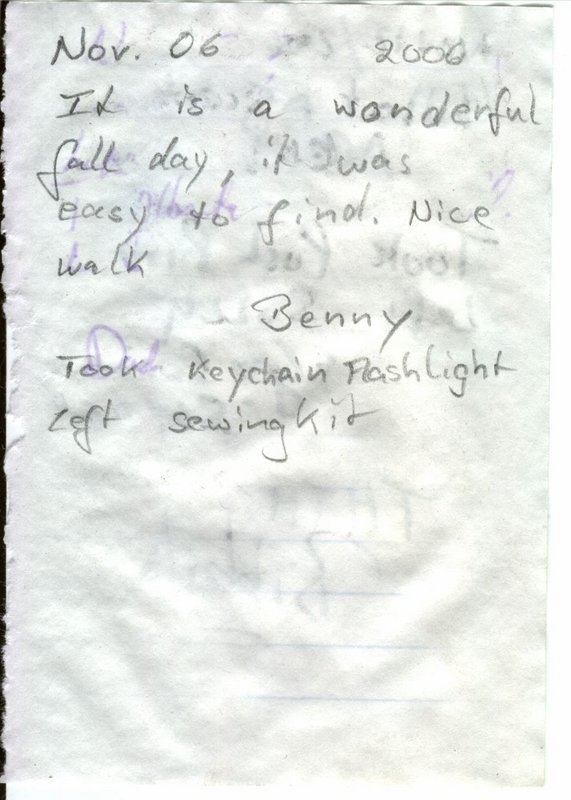 Nov. 06 2006
It is a wonderful
fall day, it was
easy to find. Nice
walk
Benny
Took Keychain Flashlight
Left sewingkit